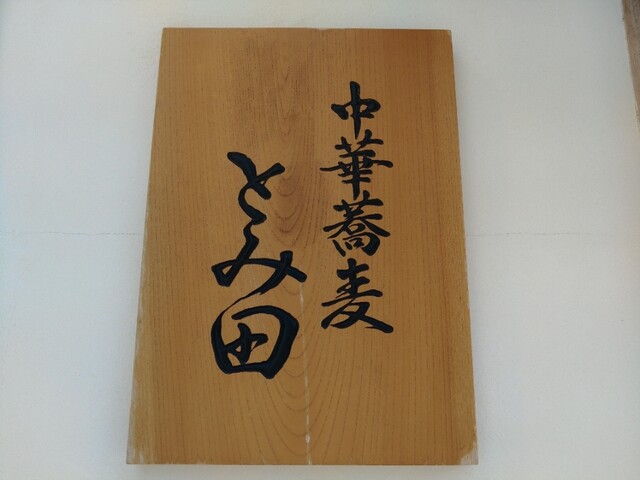 中華蕎麦
とみ田